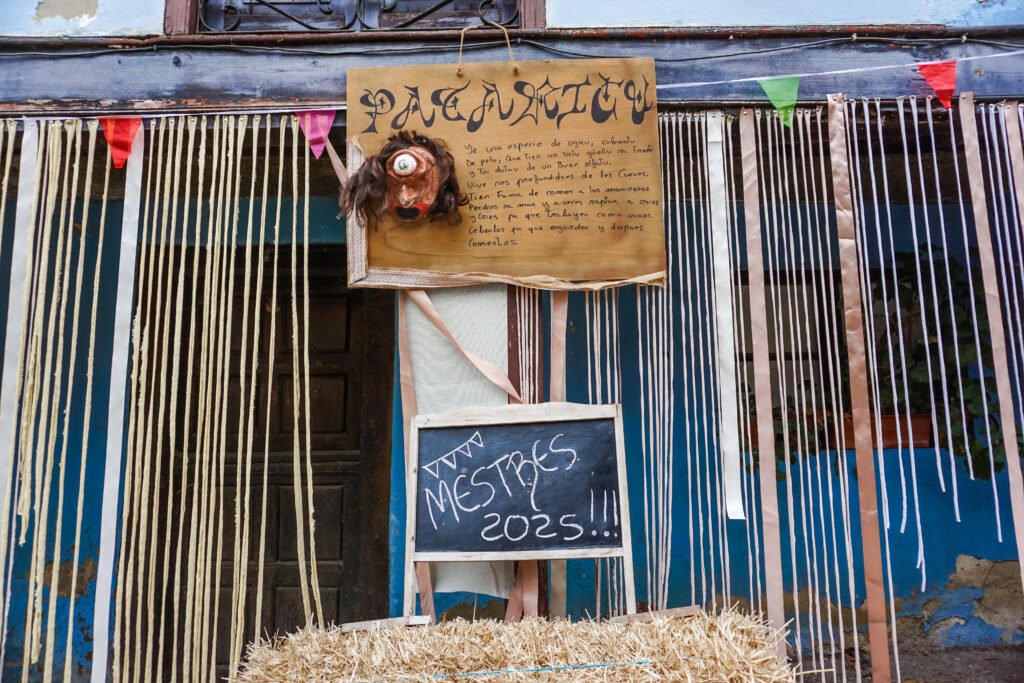 PATARICU
Ye una especie de ogru, cubiertu
De pelu, que Tien un solu güeyu na Frente
y Ta dotau de un Buen olfatu.
Vive nes profundidaes de les Cueves.
Tien Fama de comer a los marineros
Perdios na mar y a veces raptar a crios
y Cries pa que trabayen como criaos.
Cebenlos pa que engorden y despues
ComenLos.
MESTRES
2025 !!!